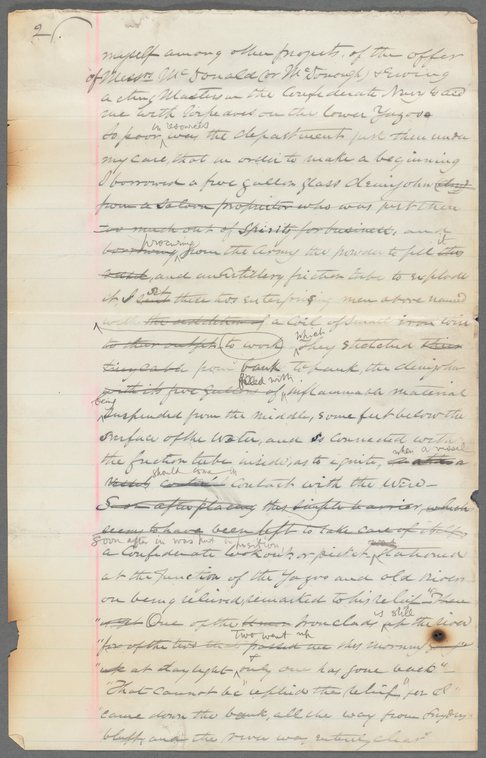 2/.
myself among other projects, of the offer
of Messrs McDonald (or McDonough) & Ewing
acting Masters in the Confederate Navy to aid
me with torpedoes on the lower Yazoo.
So poor in resources was the department just then under
my care, that in order to make a beginning
I borrowed a five gallon glass demijohn
from a Saloon proprietor who was just then
too much out of Spirits for business, and
borrowing procuring from the Army the powder to fill it
and an artillery friction tube to explode
it I set these two enterprising men above named
with the addition of a coil of small iron wire
to their outfit (to work) which they stretched
from bank to bank, the demijohn
with its five gallons filled with of inflammable material
being suspended from the middle, some feet below the
surface of the water, and so connected with
the friction tube inside, as to ignite, when a vessel
should come in contact with the wire—
Soon after placing this simple barrier, which
seems to have been left to take care of itself
Soon after it was put in position
a Confederate lookout or picket, stationed
at the junction of the Yazoo and old rivers
on being relieved, remarked to his relief
"One of the Ironclads is still up the river
"for of the two that passed me this morning
Two went up
"up at daylight & only one has gone back"
"That cannot be" replied the relief "for I
"came down the bank, all the way from Snyders
"bluff, and the river was entirely clear"